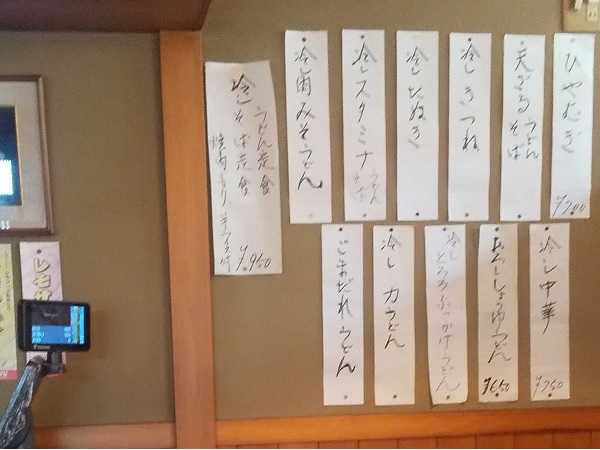 ひやむぎ
¥700
天ざるうどん
そば
冷しきつね
冷したぬき
冷しスタミナうどん
そば
冷肉みそうどん
冷し
うどん定食
そば定食
¥950
冷し中華
¥750
おろししょうゆうどん
¥650
冷し
とろろぶっかけうどん
冷し力うどん
ごまだれうどん